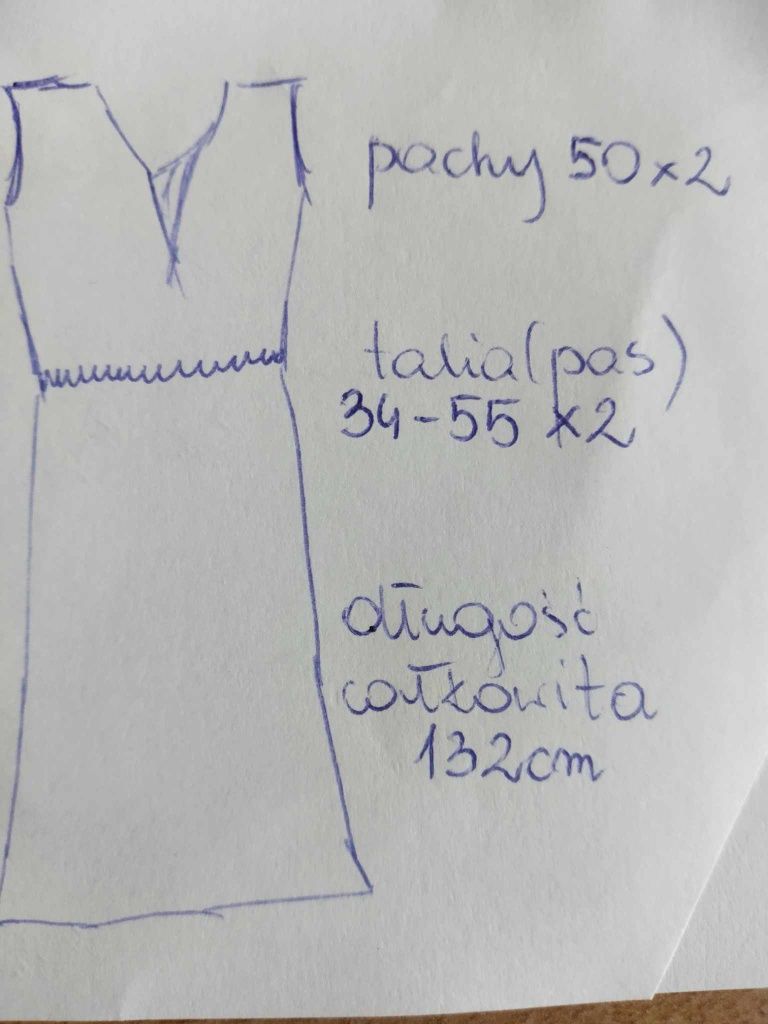 pachy 50 x 2
talia (pas)
34-55 x2
długość
całkowita
132cm